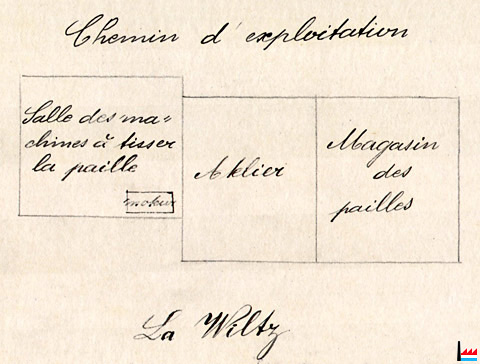 Chemin d'exploitation
Salle des ma=
chines à tisser
la paille
moteur
Atelier
Magasin
des
pailles
La Wiltz